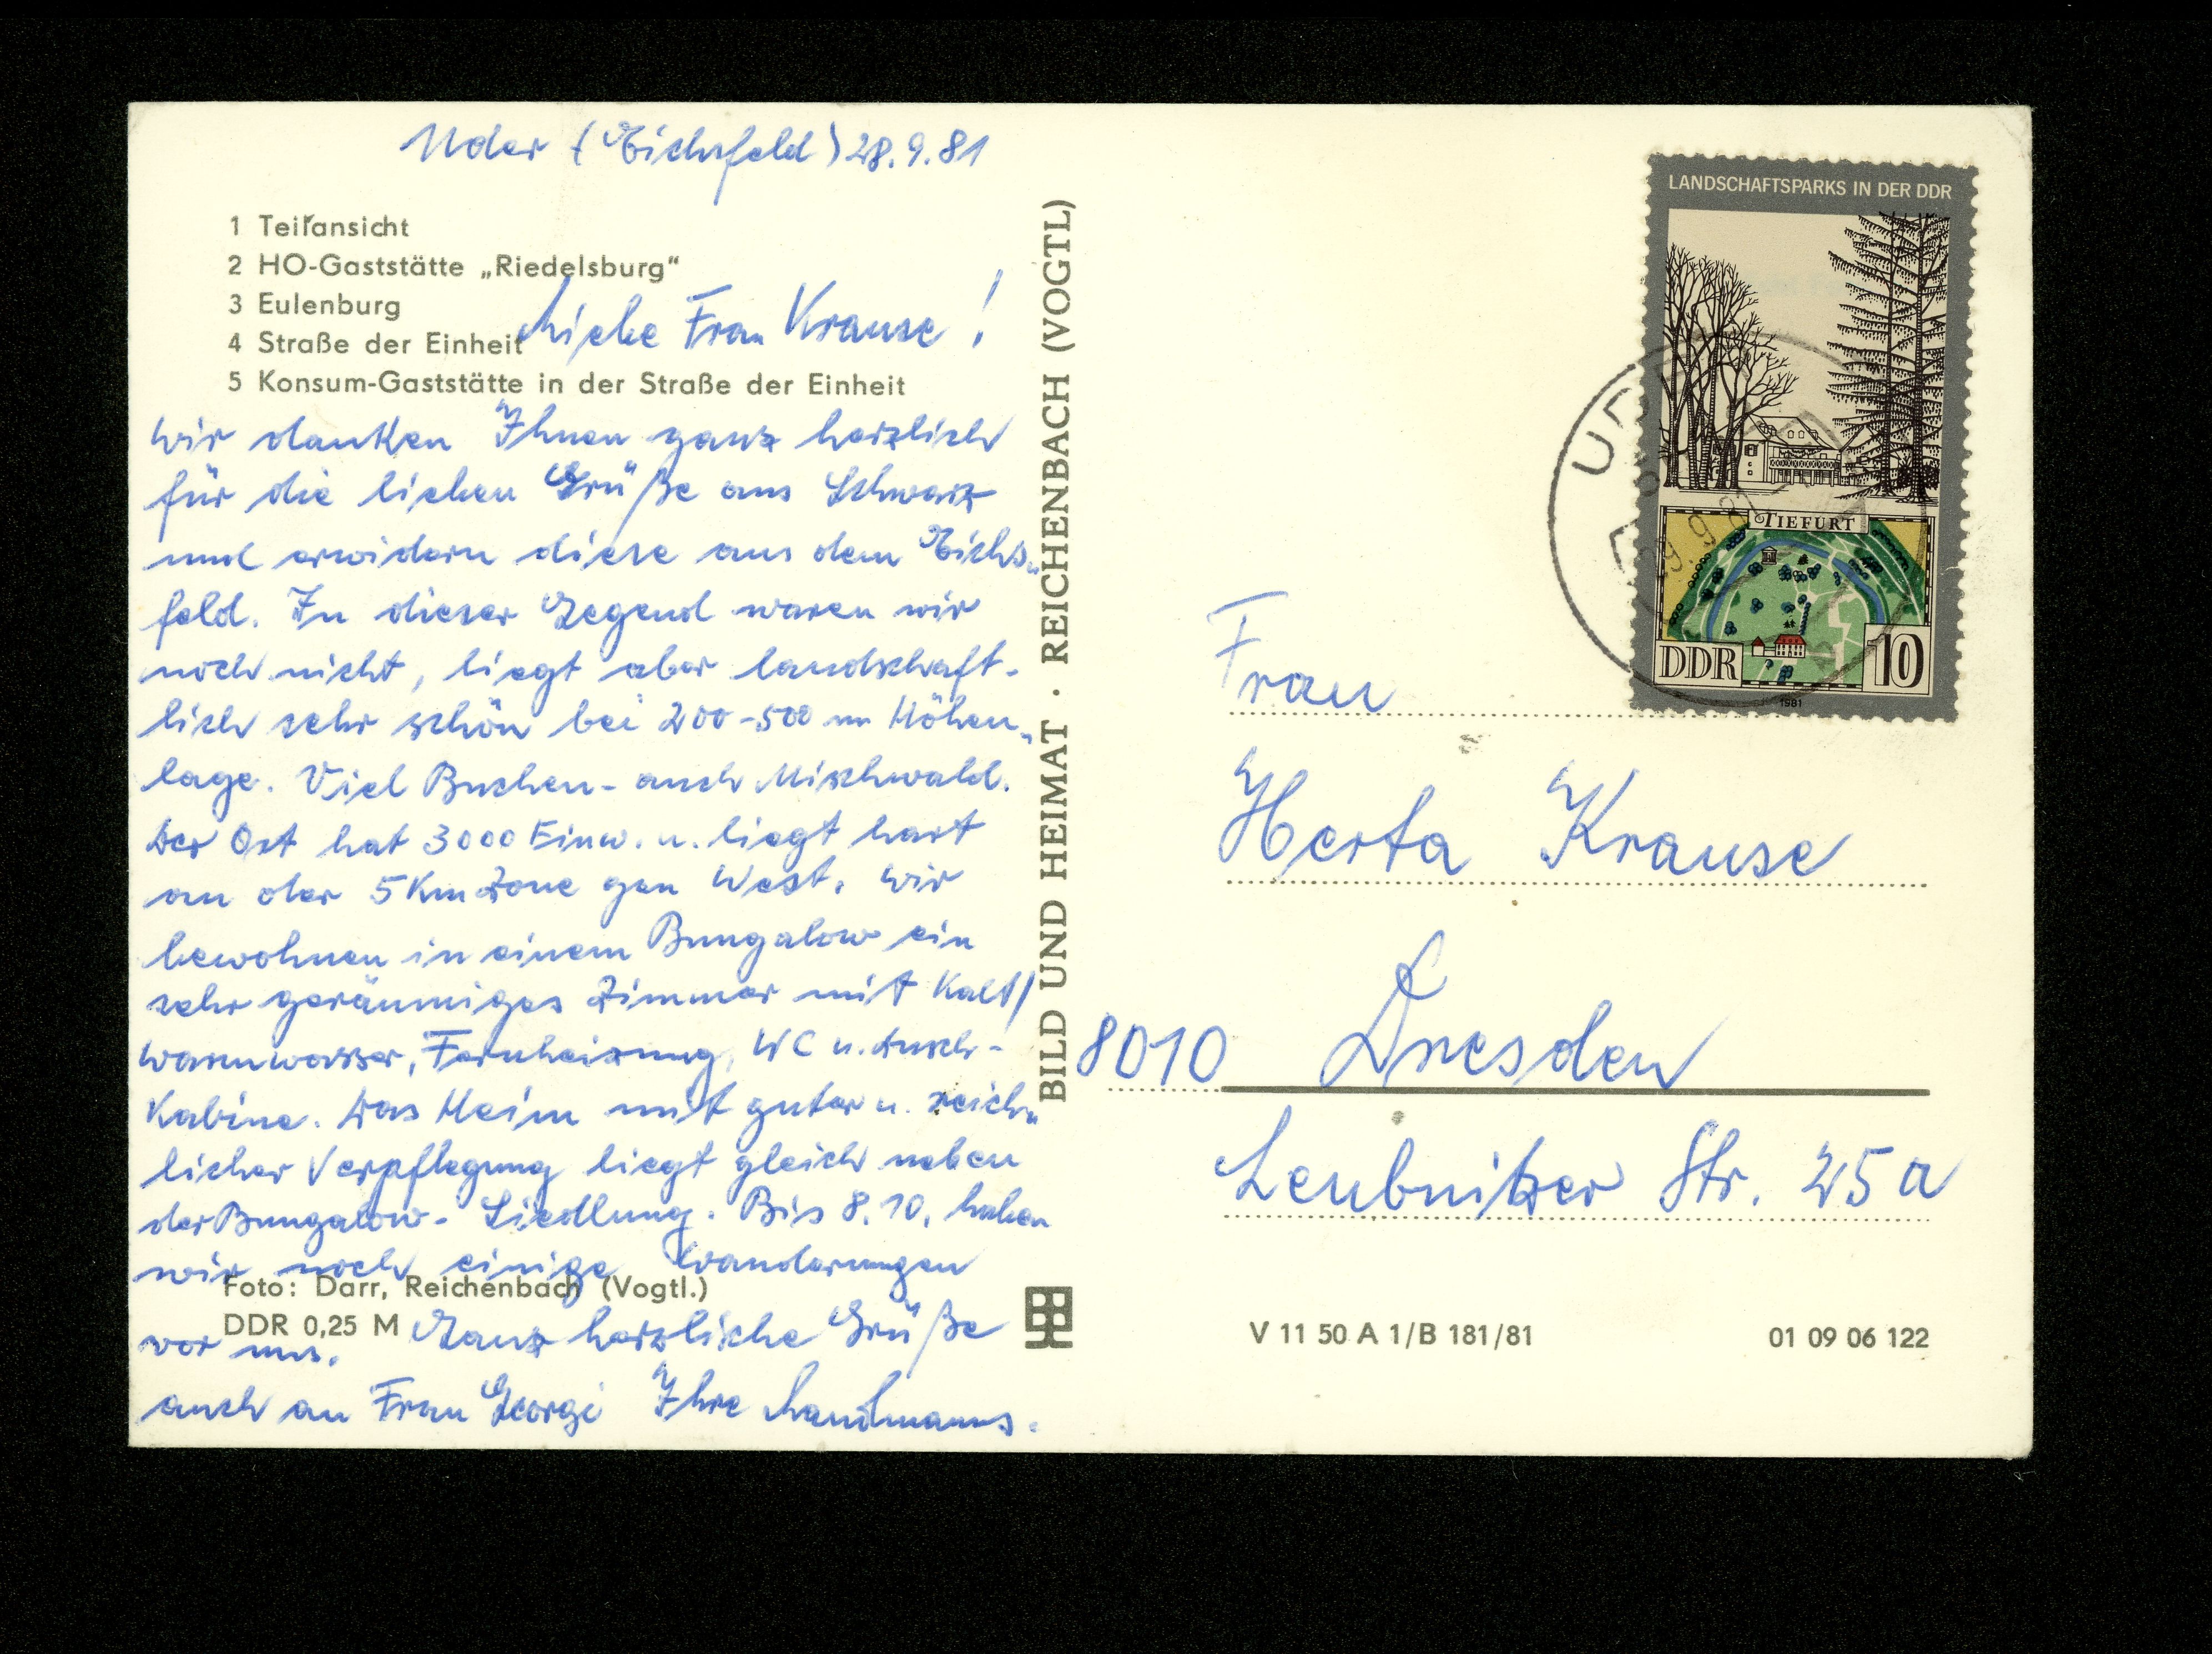 Uder (Eichsfeld) 28.9.81
1 Teilansicht
2 HO-Gaststätte „Riedelsburg“
3 Eulenburg
4 Straße der Einheit
5 Konsum-Gaststätte in der Straße der Einheit
Liebe Frau Krause!
wir danken Ihnen ganz herzlich
für die lieben Grüße aus Schwarz
und erwidern diese aus dem Eichs„
feld. In dieser Gegend waren wir
noch nicht, liegt aber landschaft-
lich sehr schön bei 200-500 m Höhen„
lage. Viel Buchen- auch Mischwald.
Der Ort hat 3000 Einw. u. liegt hart
an der 5 Km Zone gen West. Wir
bewohnen in einem Bungalow ein
sehr geräumiges Zimmer mit Kalt/
warmwasser, Fernheizung, WC u. Dusch-
Kabine. Das Heim mit guter u. reich„
licher Verpflegung liegt gleich neben
der Bungalow- Siedlung. Bis 8.10. haben
wir noch einige Wanderungen
Foto: Darr, Reichenbach (Vogtl.)
DDR 0,25 M
vor uns. Ganz herzliche Grüße
auch an Frau Georgi Ihre Landmanns.
BILD UND HEIMAT · REICHENBACH (VOGTL)
LANDSCHAFTSPARKS IN DER DDR
TIEFURT
DDR 10
1981
29.9.81
Frau
Herta Krause
8010 Dresden
Leubnitzer Str. 25 a
V 11 50 A 1/B 181/81 01 09 06 122